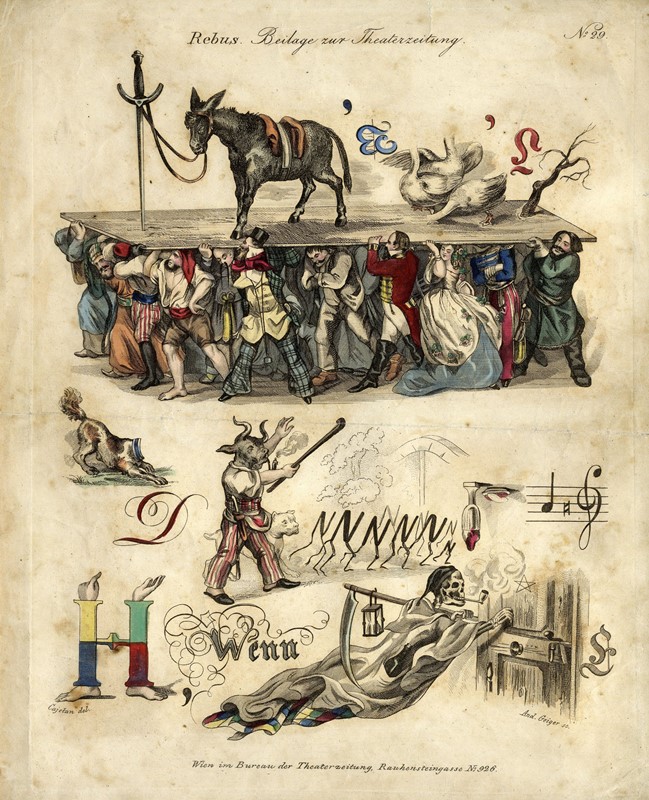 Rebus. Beilage zur Theaterzeitung.
No. 29.
, , L
D
NNNNNNN
H , Wenn
Cajetan del.
And. Geiger sc.
Wien im Bureau der Theaterzeitung, Rauhensteingasse No. 926.